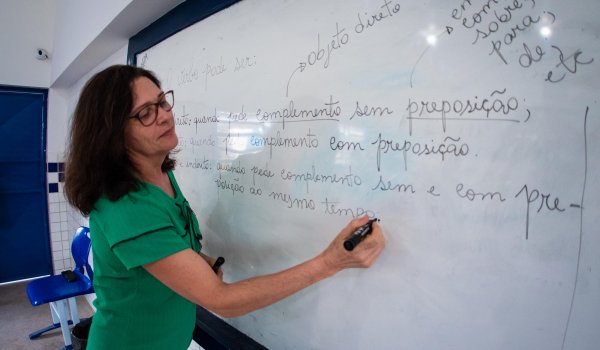 objeto direto
em,
com,
sobre,
para,
de
etc
verbo pode ser:
direto: quando pede complemento sem preposição;
quando pede complemento com preposição.
e indireto: quando pede complemento sem e com pre-
posição ao mesmo tempo